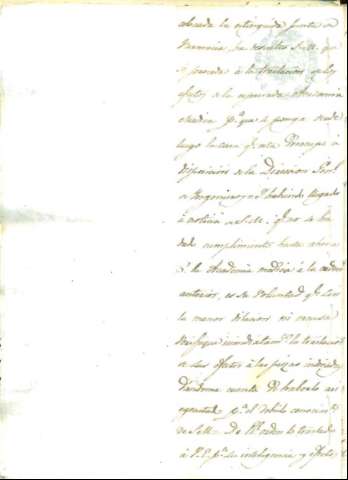 la extinguida Junta de
ha resuelto S.M. que
se proceda á la traslacion de los
efectos de la espresada Academia
Medica pª que se ponga desde
luego la casa qe esta Principe á
disposicion de la Direccion Genl
de Yngenieros; y habiendo llegado
á noticia de S.M. qe no se ha
dado cumplimiento hasta ahora
pr la Academia medica á la orden
anterior, es su voluntad qe con
la menor dilacion ni escusa
verifique inmediatamte la traslacion
de sus efectos á las piezas indicadas,
dandome cuenta de haberlo asi
egecutado pª el debido conocimto
de S.M. De Rl orden lo traslado
á V.E. pª su inteligencia y efectos